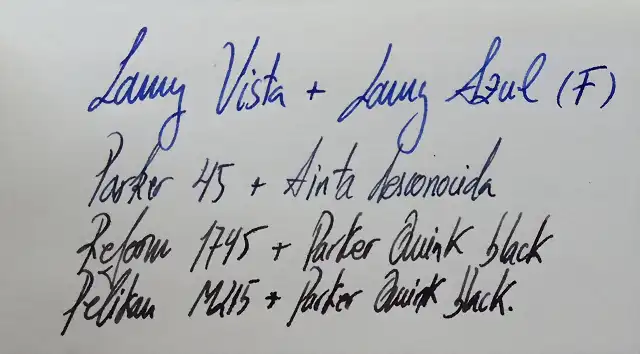 Lamy Vista + Lamy Azul (F)
Parker 45 + tinta desconocida
Reform 1745 + Parker Quink black
Pelikan M215 + Parker Quink black.